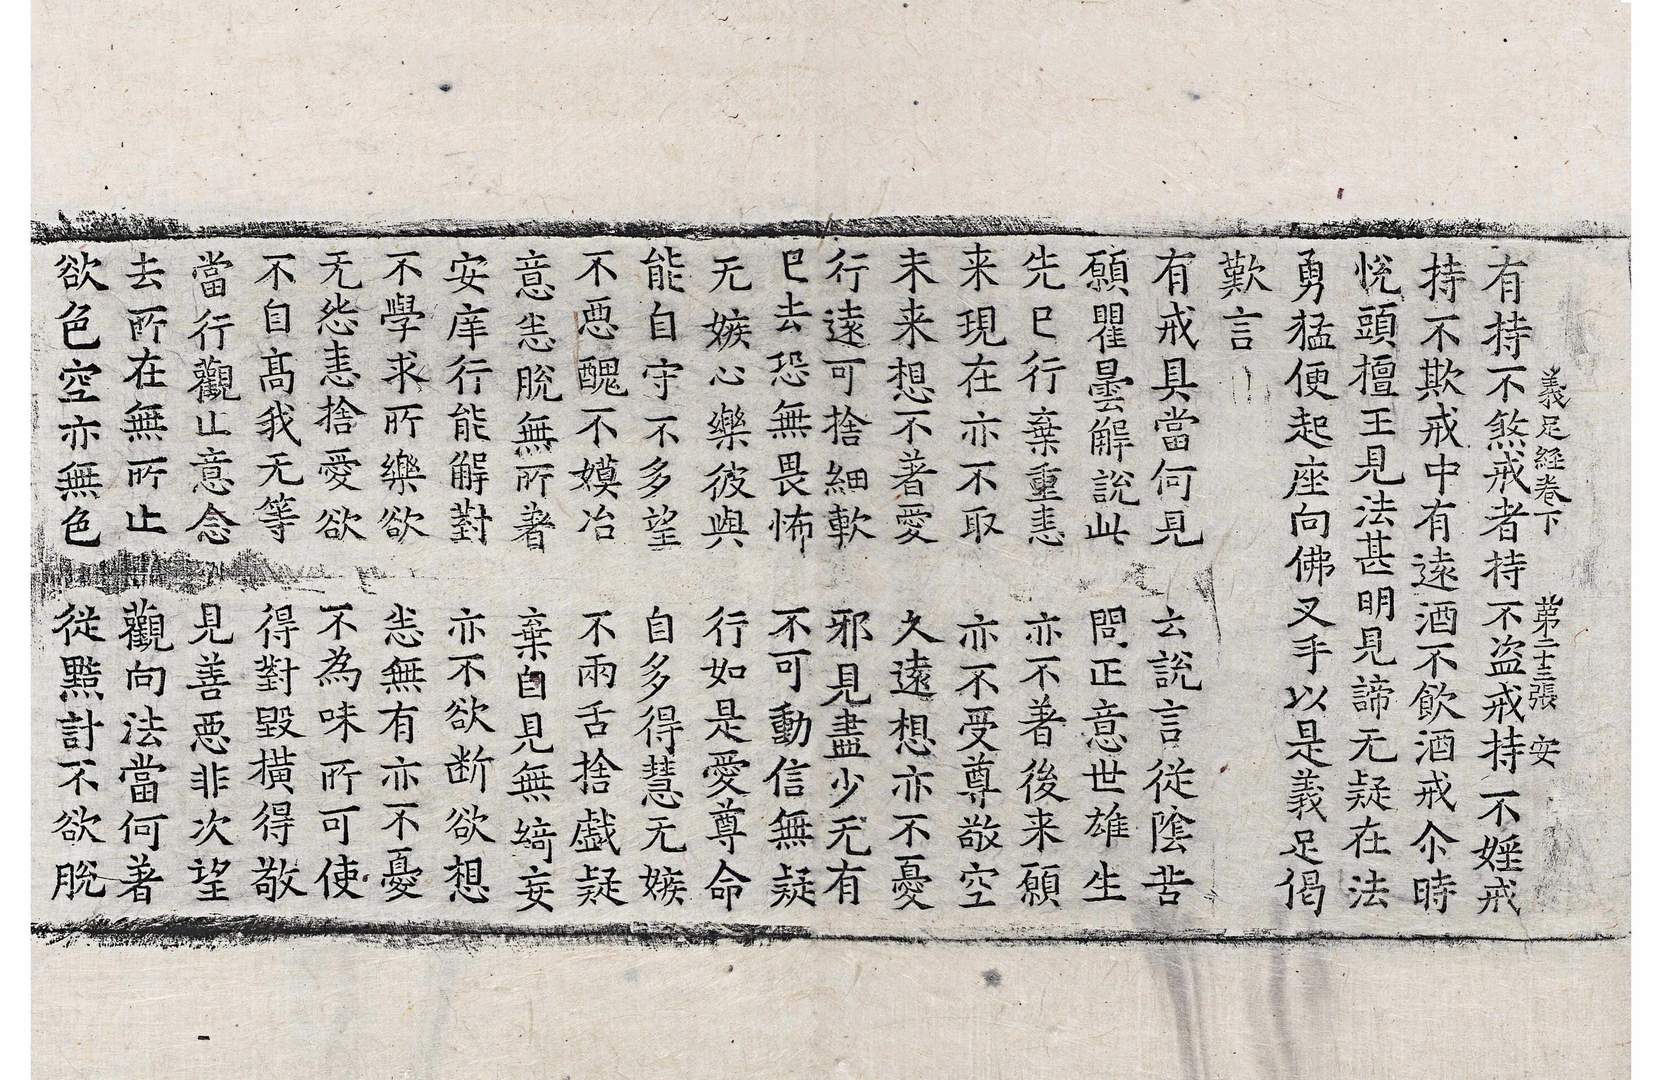 義足經卷下 第二十三張 安
有持不煞戒者持不盜戒持不婬戒
持不欺戒中有遠酒不飲酒戒尒時
悅頭檀王見法甚明見諦无疑在法
勇猛便起座向佛叉手以是義足偈
歎言
有戒具當何見 云說言從陰苦
願瞿曇解說此 問正意世雄生
先已行棄重恚 亦不著後来願
来現在亦不取 亦不受尊敬空
未来想不著愛 久遠想亦不憂
行遠可捨細軟 邪見盡少无有
已去恐無畏怖 不可動信無疑
无嫉心樂彼與 行如是愛尊命
能自守不多望 自多得慧无嫉
不惡醜不嫫冶 不兩舌捨戲疑
意悉脫無所著 棄自見無綺妄
安庠行能解對 亦不欲断欲想
不學求所樂欲 悉無有亦不憂
无怨恚捨愛欲 不為味所可使
不自高我无等 得對毀橫得敬
當行觀止意念 見善惡非次望
去所在無所止 觀向法當何著
欲色空亦無色 從黠計不欲脫